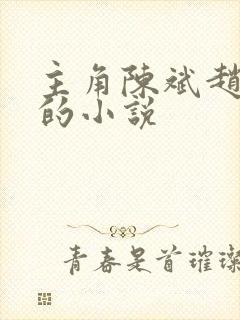 主角陳斌趙
的小說
青春是首璀璨